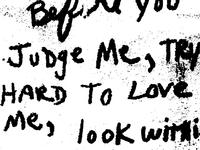 Before you
Judge Me, TRY
HARD TO Love
Me, look within